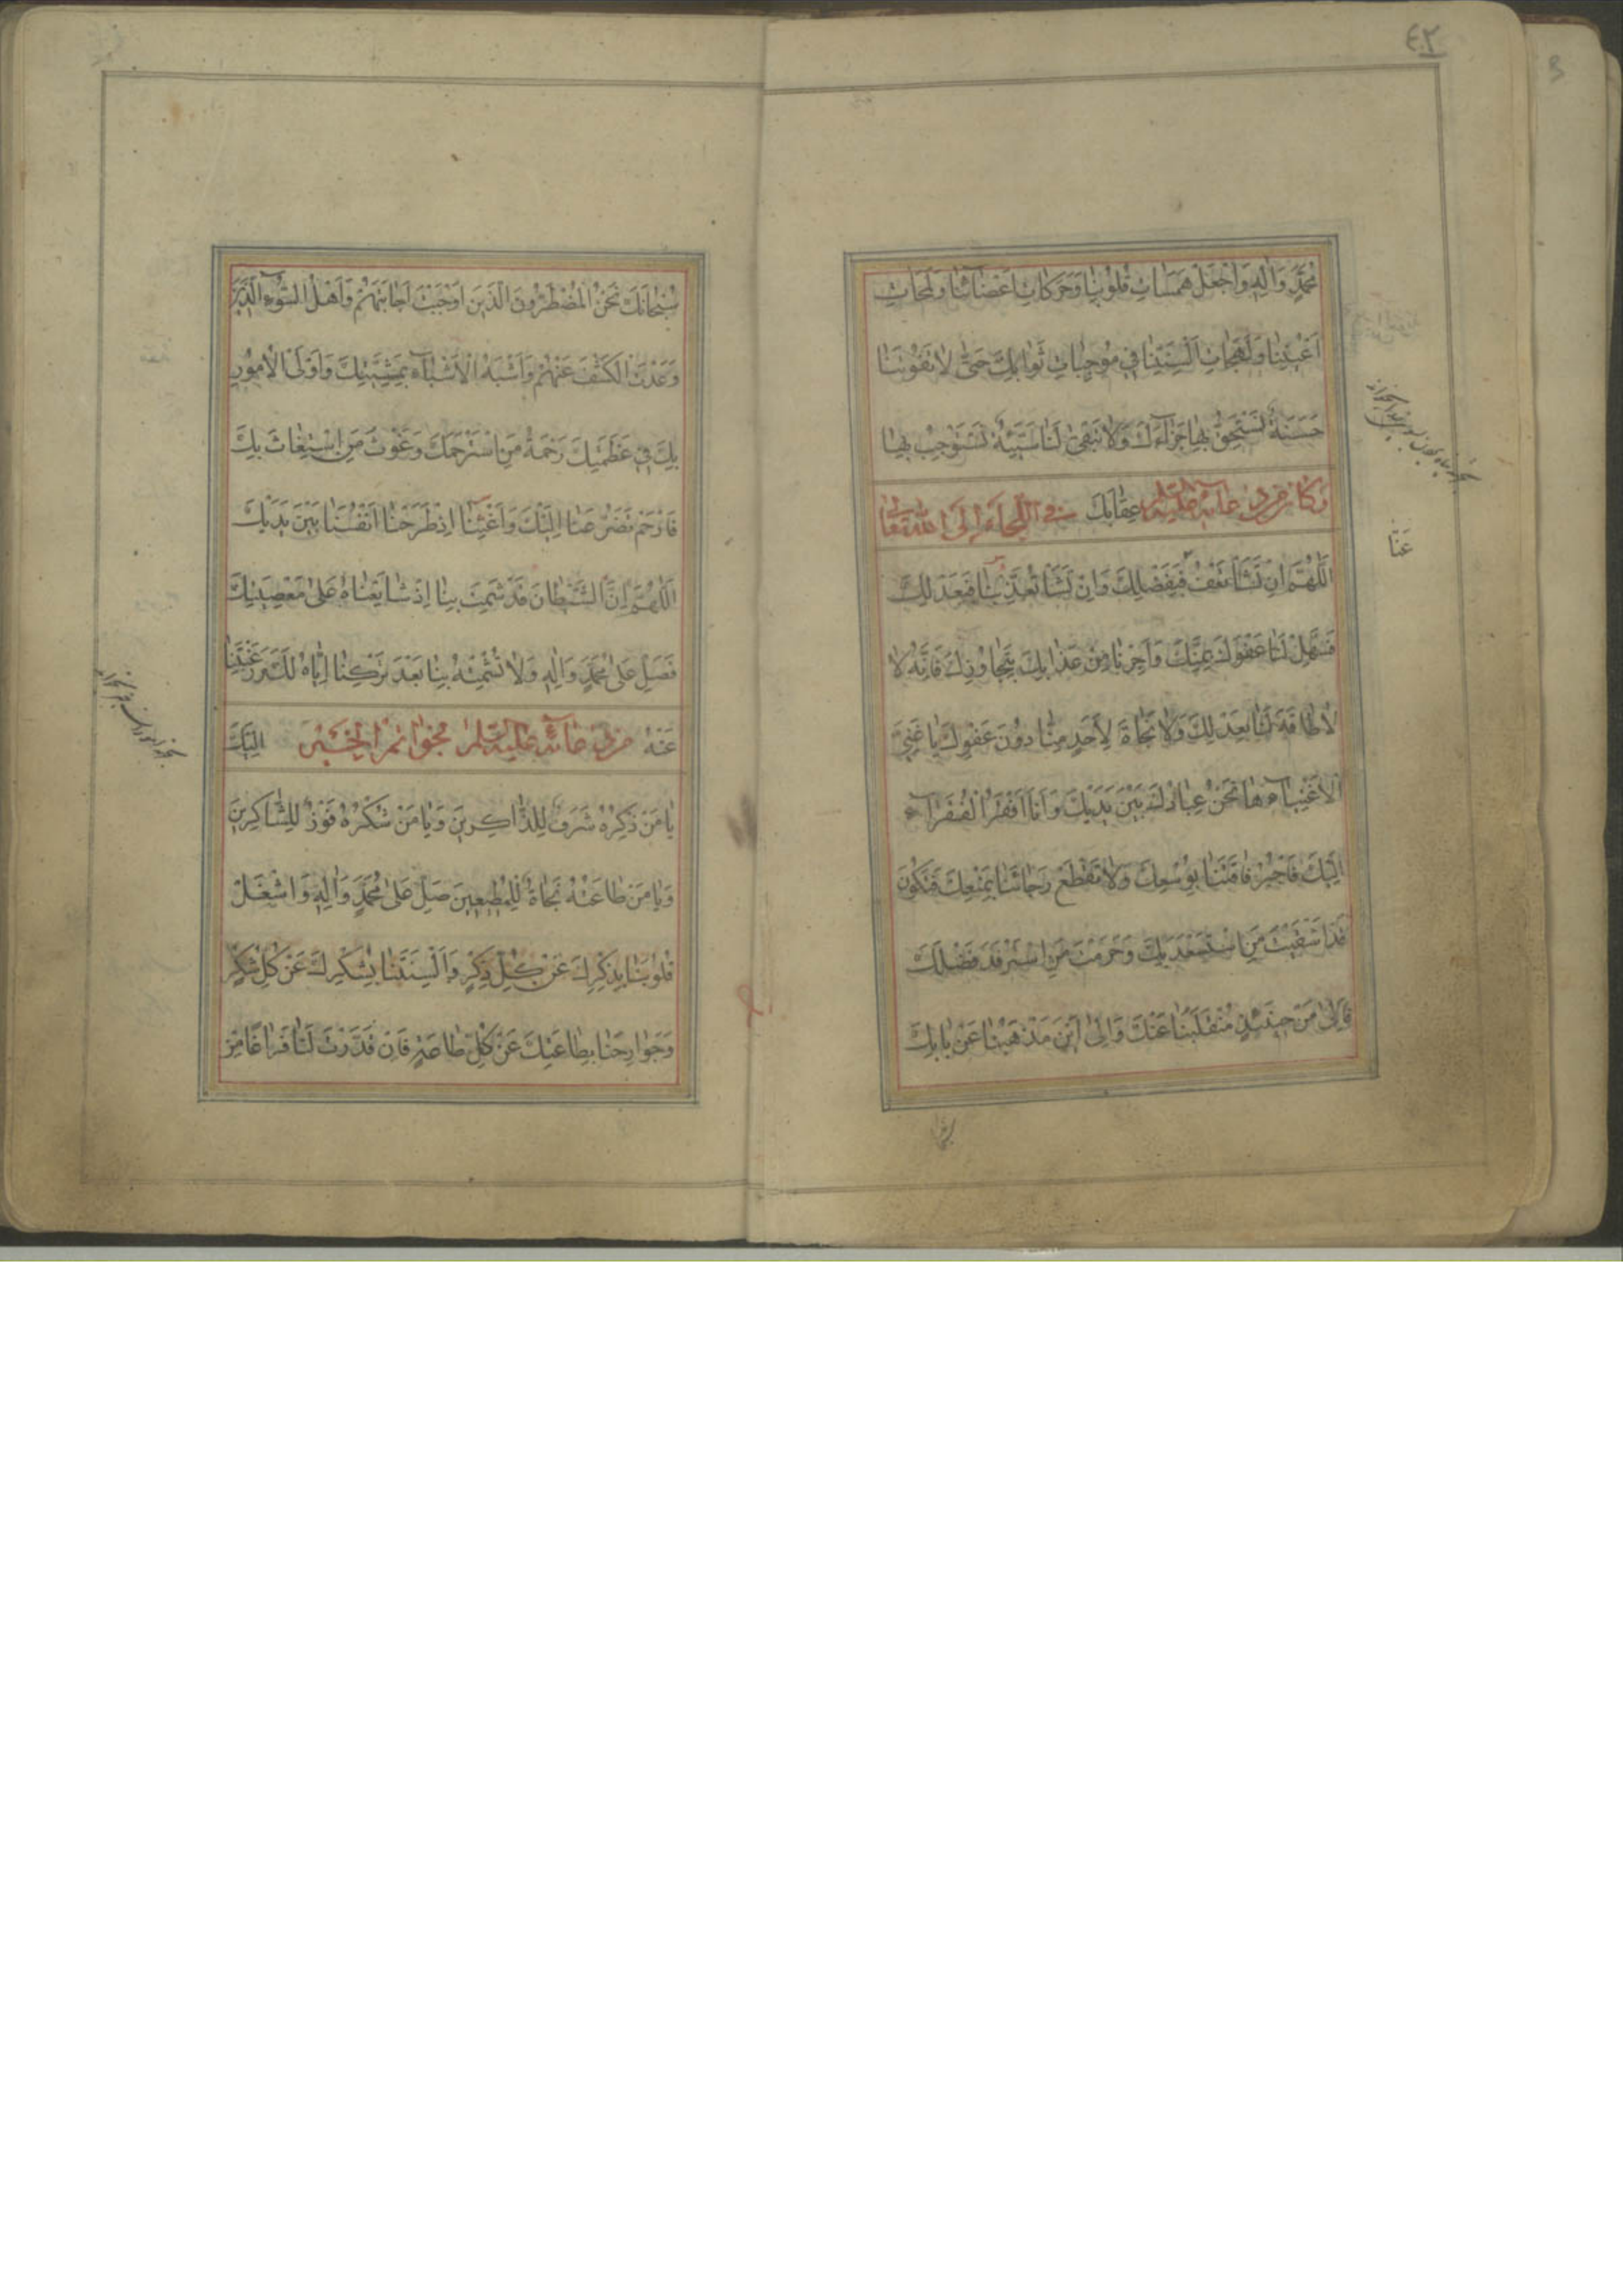 ٤٢
مُحَمَّدٍ وَاٰلِهِ وَاجْعَلْ هَمَسَاتِ قُلُوبِنَا وَحَرَكَاتِ اَعْضَائِنَا وَلَمَحَاتِ
اَعْيُنِنَا وَلَهَجَاتِ اَلْسِنَتِنَا فِي مُوجِبَاتِ ثَوَابِكَ حَتّٰى لَا تَفُوتَنَا
حَسَنَةٌ نَسْتَحِقُّ بِهَا جَزَاءَكَ وَلَا تَبْقٰى لَنَا سَيِّئَةٌ نَسْتَوْجِبُ بِهَا
وَكَانَ مِنْ دُعَائِهِ عَلَيْهِ السَّلَامُ عِقَابَكَ فِي اللَّجَاءِ اِلَى اللهِ تَعَالٰى
اَللّٰهُمَّ اِنْ تَشَأْ تَعْفُ فَبِفَضْلِكَ وَاِنْ تَشَأْ تُعَذِّبْنَا فَبِعَدْلِكَ
عَنَّا
فَسَهِّلْ لَنَا عَفْوَكَ بِمَنِّكَ وَاَجِرْنَا مِنْ عَذَابِكَ بِتَجَاوُزِكَ فَاِنَّهُ لَا
لَا طَاقَةَ لَنَا بِعَدْلِكَ وَلَا نَجَاةَ لِاَحَدٍ مِنَّا دُونَ عَفْوِكَ يَا غَنِيَّ
الْاَغْنِيَاءِ هَا نَحْنُ عِبَادُكَ بَيْنَ يَدَيْكَ وَاَنَا اَفْقَرُ الْفُقَرَاءِ
اِلَيْكَ فَاجْبُرْ فَاقَتَنَا بِوُسْعِكَ وَلَا تَقْطَعْ رَجَائَنَا بِمَنْعِكَ فَتَكُونَ
قَدْ اَشْقَيْتَ مَنِ اسْتَسْعَدَ بِكَ وَحَرَمْتَ مَنِ اسْتَرْفَدَ فَضْلَكَ
فَاِلٰى مَنْ حِينَئِذٍ مُنْقَلَبُنَا عَنْكَ وَاِلٰى اَيْنَ مَذْهَبُنَا عَنْ بَابِكَ
سُبْحَانَكَ نَحْنُ الْمُضْطَرُّونَ الَّذِينَ اَوْجَبْتَ اِجَابَتَهُمْ وَاَهْلُ السُّوءِ الَّذِينَ
وَعَدْتَ الْكَشْفَ عَنْهُمْ وَاَشْبَهُ الْاَشْيَاءِ بِمَشِيَّتِكَ وَاَوْلَى الْاُمُورِ
بِكَ فِي عَظَمَتِكَ رَحْمَةُ مَنِ اسْتَرْحَمَكَ وَغَوْثُ مَنِ اسْتَغَاثَ بِكَ
فَارْحَمْ تَضَرُّعَنَا اِلَيْكَ وَاَغْنِنَا اِذْ طَرَحْنَا اَنْفُسَنَا بَيْنَ يَدَيْكَ
اَللّٰهُمَّ اِنَّ الشَّيْطَانَ قَدْ شَمِتَ بِنَا اِذْ شَايَعْنَاهُ عَلٰى مَعْصِيَتِكَ
فَصَلِّ عَلٰى مُحَمَّدٍ وَاٰلِهِ وَلَا تُشْمِتْهُ بِنَا بَعْدَ تَرْكِنَا اِيَّاهُ لَكَ وَرَغْبَتِنَا
عَنْهُ مِنْ دُعَائِهِ عَلَيْهِ السَّلَامُ بِخَوَاتِمِ الْخَيْرِ اِلَيْكَ
يَا مَنْ ذِكْرُهُ شَرَفٌ لِلذَّاكِرِينَ وَيَا مَنْ شُكْرُهُ فَوْزٌ لِلشَّاكِرِينَ
وَيَا مَنْ طَاعَتُهُ نَجَاةٌ لِلْمُطِيعِينَ صَلِّ عَلٰى مُحَمَّدٍ وَاٰلِهِ وَاشْغَلْ
قُلُوبَنَا بِذِكْرِكَ عَنْ كُلِّ ذِكْرٍ وَاَلْسِنَتَنَا بِشُكْرِكَ عَنْ كُلِّ شُكْرٍ
وَجَوَارِحَنَا بِطَاعَتِكَ عَنْ كُلِّ طَاعَةٍ فَاِنْ قَدَّرْتَ لَنَا فَرَاغًا مِنْ